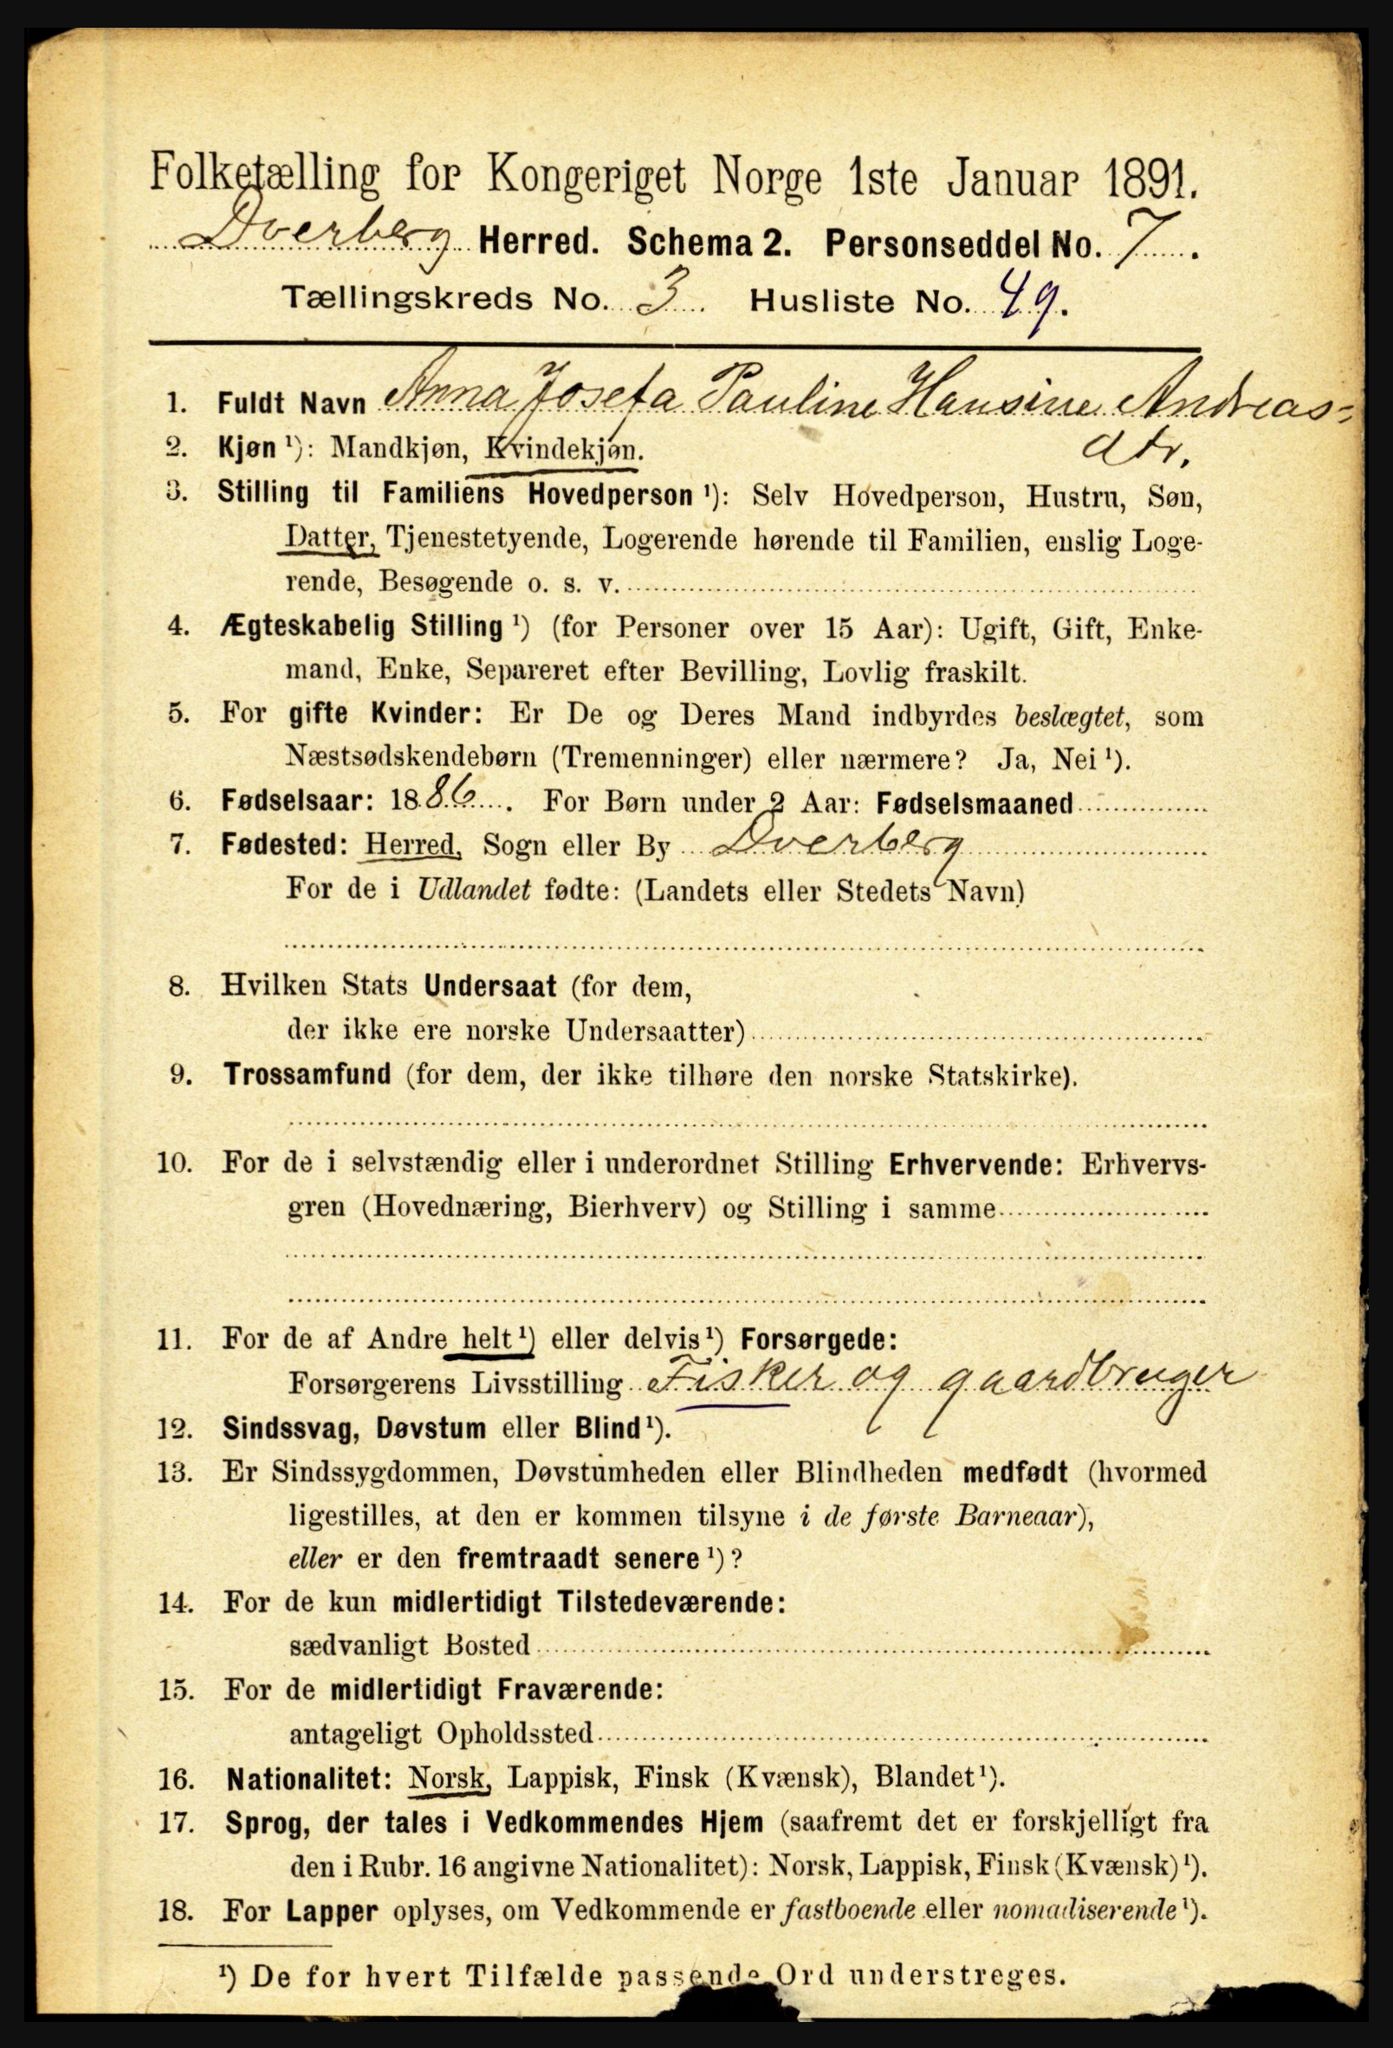 Folketælling for Kongeriget Norge 1ste Januar 1891.
Dverberg Herred. Schema 2. Personseddel No. 7.
Tællingskreds No. 3 Husliste No. 49.
1. Fuldt Navn Anna Josefa Pauline Hansine Andreas-
dtr.
2. Kjøn ¹): Mandkjøn, Kvindekjøn.
3. Stilling til Familiens Hovedperson ¹): Selv Hovedperson, Hustru, Søn,
Datter, Tjenestetyende, Logerende hørende til Familien, enslig Loge-
rende, Besøgende o. s. v.
4. Ægteskabelig Stilling ¹) (for Personer over 15 Aar): Ugift, Gift, Enke-
mand, Enke, Separeret efter Bevilling, Lovlig fraskilt.
5. For gifte Kvinder: Er De og Deres Mand indbyrdes beslægtet, som
Næstsødskendebørn (Tremenninger) eller nærmere? Ja, Nei ¹).
6. Fødselsaar: 1886. For Børn under 2 Aar: Fødselsmaaned
7. Fødested: Herred, Sogn eller By Dverberg
For de i Udlandet fødte: (Landets eller Stedets Navn)
8. Hvilken Stats Undersaat (for dem,
der ikke ere norske Undersaatter)
9. Trossamfund (for dem, der ikke tilhøre den norske Statskirke).
10. For de i selvstændig eller i underordnet Stilling Erhvervende: Erhvervs-
gren (Hovednæring, Bierhverv) og Stilling i samme
11. For de af Andre helt ¹) eller delvis ¹) Forsørgede:
Forsørgerens Livsstilling Fisker og gaardbruger
12. Sindssvag, Døvstum eller Blind ¹).
13. Er Sindssygdommen, Døvstumheden eller Blindheden medfødt (hvormed
ligestilles, at den er kommen tilsyne i de første Barneaar),
eller er den fremtraadt senere ¹)?
14. For de kun midlertidigt Tilstedeværende:
sædvanligt Bosted
15. For de midlertidigt Fraværende:
antageligt Opholdssted
16. Nationalitet: Norsk, Lappisk, Finsk (Kvænsk), Blandet ¹).
17. Sprog, der tales i Vedkommendes Hjem (saafremt det er forskjelligt fra
den i Rubr. 16 angivne Nationalitet): Norsk, Lappisk, Finsk (Kvænsk) ¹).
18. For Lapper oplyses, om Vedkommende er fastboende eller nomadiserende ¹).
¹) De for hvert Tilfælde passende Ord understreges.